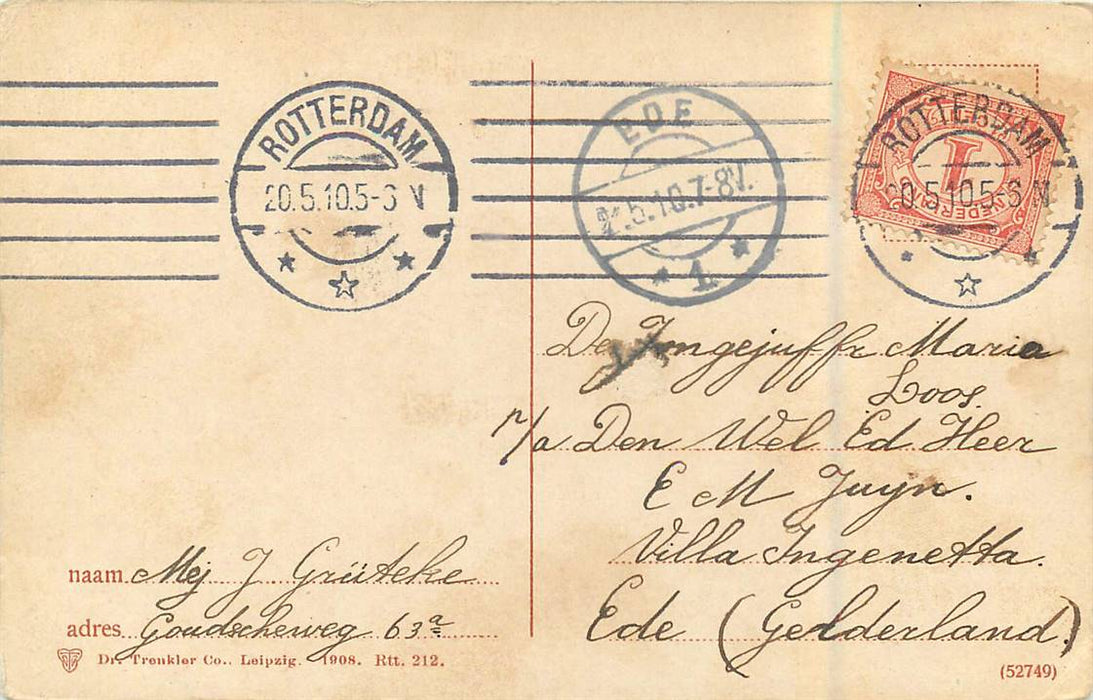 ROTTERDAM
20.5.10.5-6 N
EDE
21.5.10.7-8V.
1
ROTTERDAM
20.5.10.5-6 N
1
NEDERL
De Jongejuffr Maria
Loos
p/a Den Wel Ed Heer
E M Juyn.
Villa Ingenetta.
Ede (Gelderland.)
naam Mej J Grüteke
adres Goudscheweg 63a
Dr. Trenkler Co., Leipzig. 1908. Rtt. 212.
(52749)